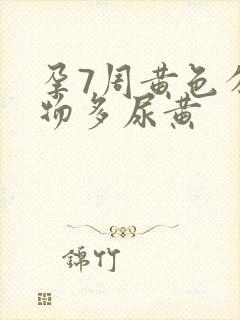 孕7周黄色分
物多尿黄
錦竹